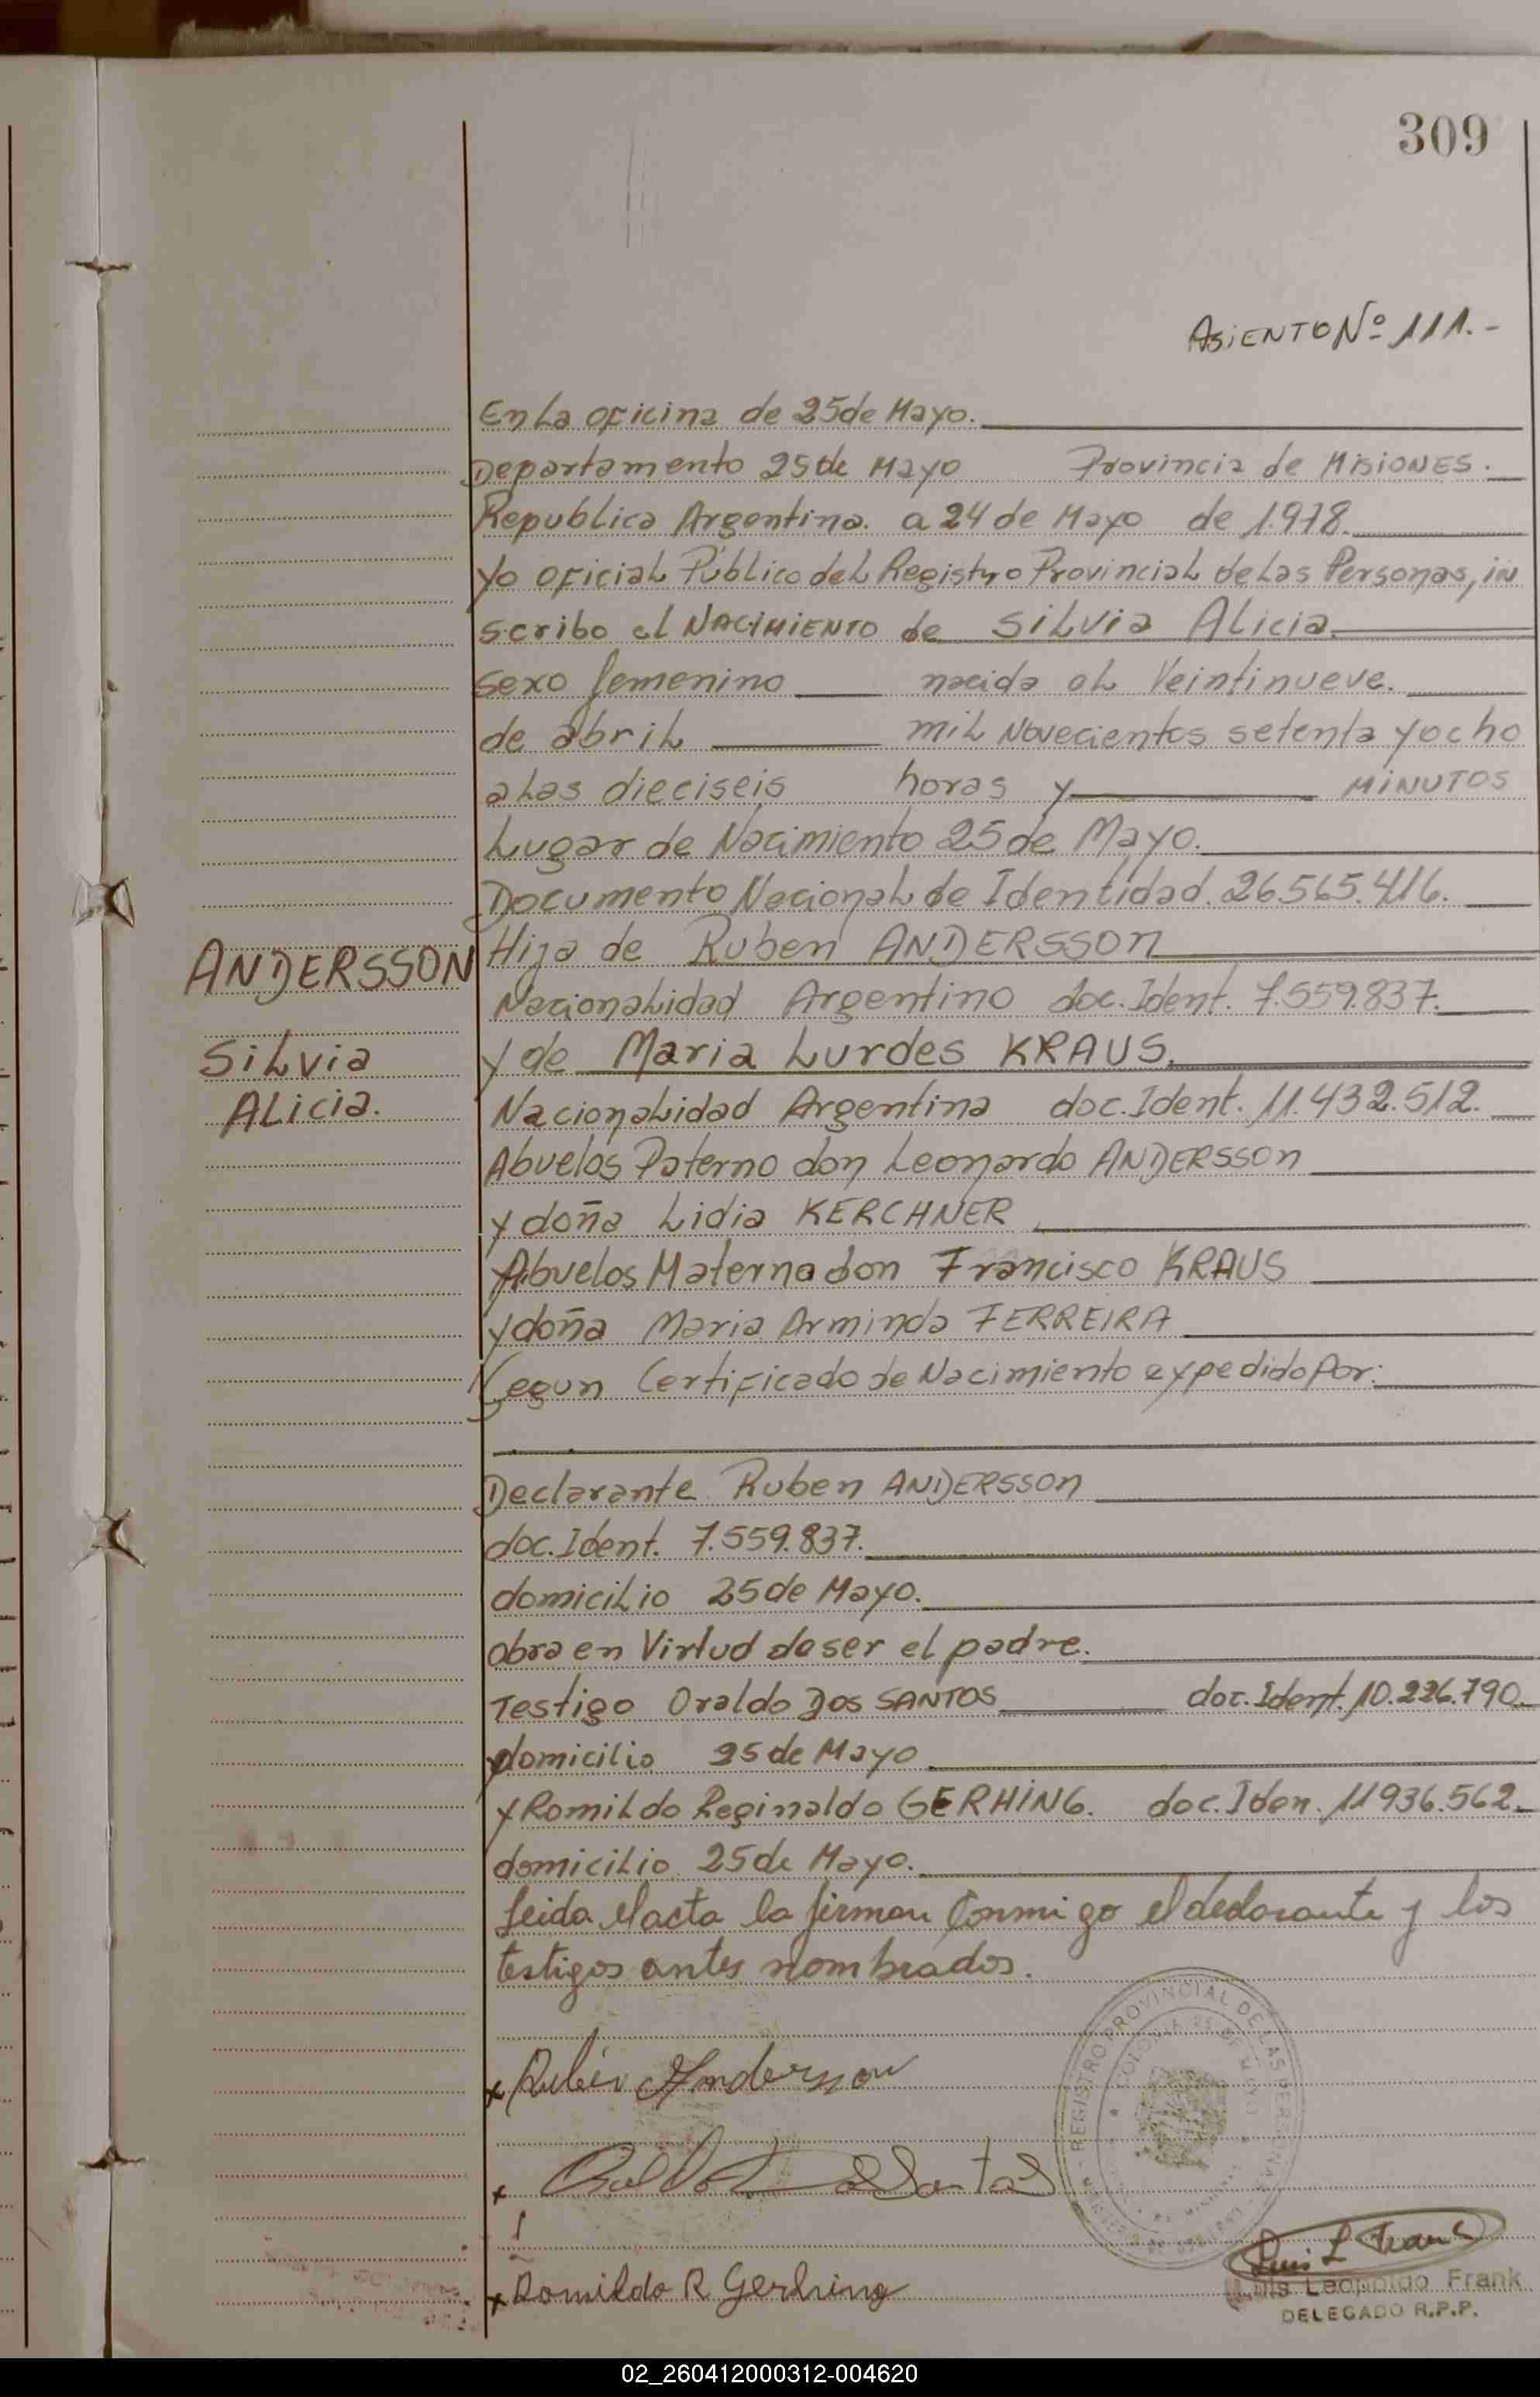 309
ASIENTO Nº 111.-
En La oficina de 25 de Mayo.
Departamento 25 de Mayo Provincia de MISIONES.
Republica Argentina. a 24 de Mayo de 1.978.
Yo oficial Público del Registro Provincial de las Personas, in
scribo el NACIMIENTO de Silvia Alicia.
sexo femenino nacida el Veintinueve.
de abril mil Novecientos setenta y ocho
a las dieciseis horas y MINUTOS
Lugar de Nacimiento 25 de Mayo.
Documento Nacional de Identidad. 26.565.416.
ANDERSSON
Hija de Ruben ANDERSSON
Nacionalidad Argentino doc. Ident. 7.559.837.
Silvia
y de Maria Lurdes KRAUS.
Alicia.
Nacionalidad Argentina doc. Ident. 11.432.512.
Abuelos Paterno don Leonardo ANDERSSON
y doña Lidia KERCHNER
Abuelos Materna don Francisco KRAUS
y doña Maria Arminda FERREIRA
Segun Certificado de Nacimiento expedido Por:
Declarante Ruben ANDERSSON
doc. Ident. 7.559.837.
domicilio 25 de Mayo.
obra en Virtud de ser el padre.
Testigo Oraldo DOS SANTOS doc. Ident. 10.226.790.
domicilio 25 de Mayo
y Romildo Reginaldo GERHING. doc. Iden. 11936.562.
domicilio 25 de Mayo.
Leida el acta la firman Conmigo el declarante y los
testigos antes nombrados.
REGISTRO PROVINCIAL DE LAS PERSONAS
COLONIA 25 DE MAYO
x Rubén Andersson
x Dos Santos
Luis L Frank
x Romildo R Gerhing
Luis Leopoldo Frank
DELEGADO R.P.P.
02_260412000312-004620